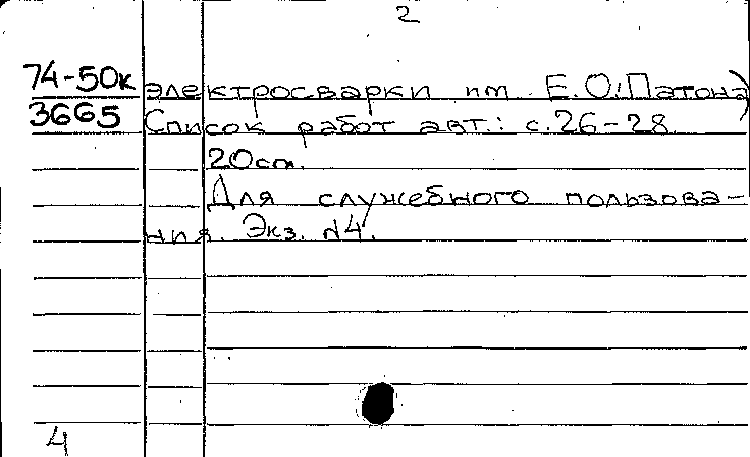 2
74-50к электросварки им. Е.О. Патона)
3665 Список работ авт.: с.26-28
20см.
Для служебного пользова-
ния. Экз. №4.
4